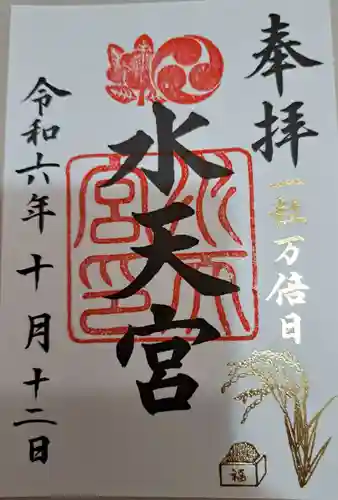 奉拝
一粒万倍日
水天宮
水天宮印
令和六年十月十二日
福